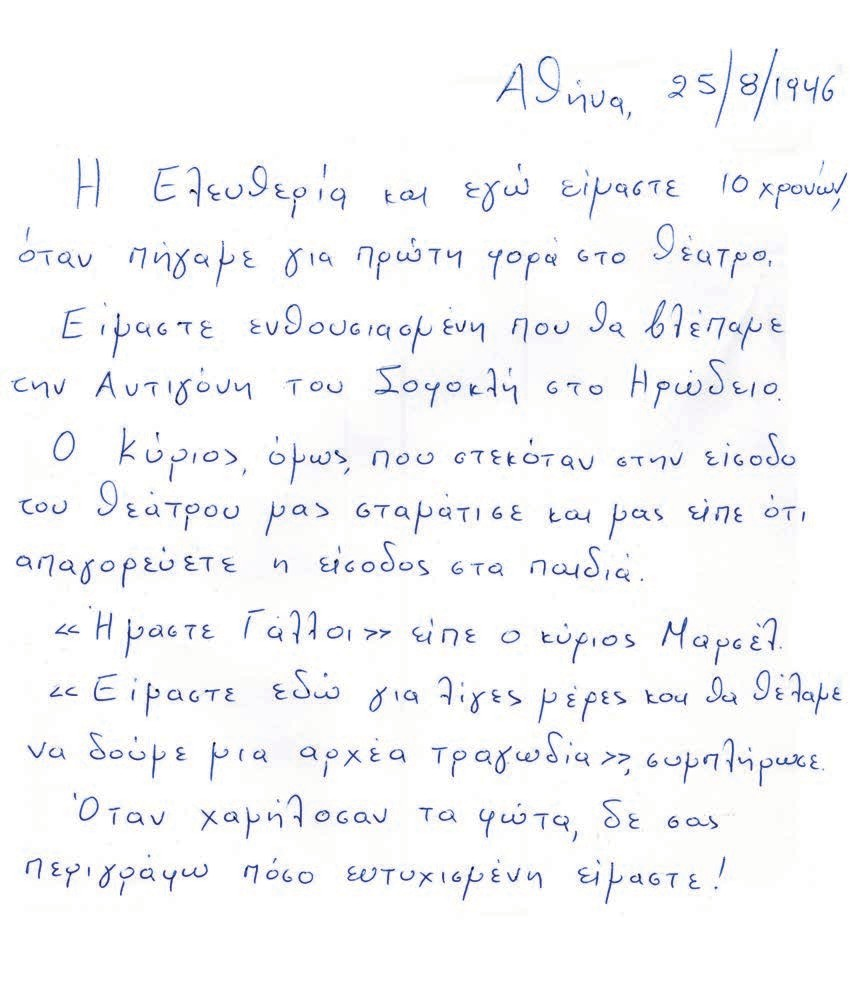 Αθήνα, 25/8/1946
Η Ελευθερία και εγώ είμαστε 10 χρονών,
όταν πήγαμε για πρώτη φορά στο θέατρο.
Είμαστε ενθουσιασμένη που θα βλέπαμε
την Αντιγόνη του Σοφοκλή στο Ηρώδειο.
Ο κύριος, όμως, που στεκόταν στην είσοδο
του θεάτρου μας σταμάτισε και μας είπε ότι
απαγορεύετε η είσοδος στα παιδιά.
«Ήμαστε Γάλλοι» είπε ο κύριος Μαρσέλ.
«Είμαστε εδώ για λίγες μέρες και θα θέλαμε
να δούμε μια αρχέα τραγωδία», συμπλήρωσε.
Όταν χαμήλοσαν τα φώτα, δε σας
περιγράφω πόσο ευτυχισμένη είμαστε!